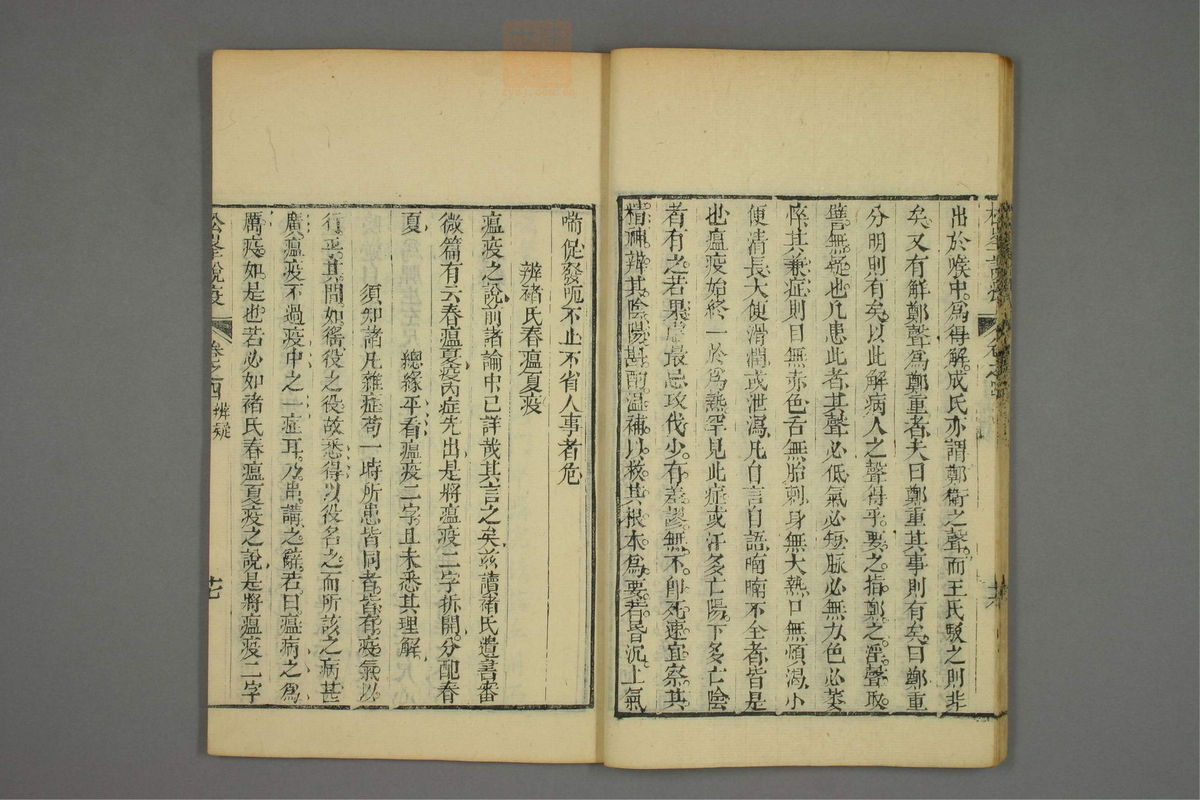 出於喉中爲得解成氏亦謂鄭衞之聲而王氏駁之則非
矣又有解鄭聲爲鄭重者夫曰鄭重其事則有矣曰鄭重
分明則有矣以此解病人之聲得乎要之指鄭之淫聲取
譬無疑也凡患此者其聲必低氣必短脉必無力色必萎
悴其兼症則目無赤色舌無胎刺身無大熱口無煩渴小
便清長大便滑潤或泄瀉凡自言自語喃喃不全者皆是
也瘟疫始終一於爲熱罕見此症或汗多亡陽下多亡陰
者有之若果虛最忌攻伐少有差謬無不卽死速宜察其
精神辨其陰陽斟酌溫補以救其根本爲要若昏沉上氣
喘促發呃不止不省人事者危
辨褚氏春瘟夏疫
瘟疫之說前諸論中已詳哉其言之矣兹讀褚氏遺書審
微篇有云春瘟夏疫內症先出是將瘟疫二字拆開分配春
夏總緣平看瘟疫二字且未悉其理解
須知諸凡雜症苟一時所患皆同者皆有疫氣以
行乎其間如徭役之役故悉得以役名之而所該之病甚
廣瘟疫不過疫中之一症耳乃串講之辭若曰瘟病之爲
厲疫如是也若必如褚氏春瘟夏疫之說是將瘟疫二字
松峯說疫
卷之四 辨疑
廿七